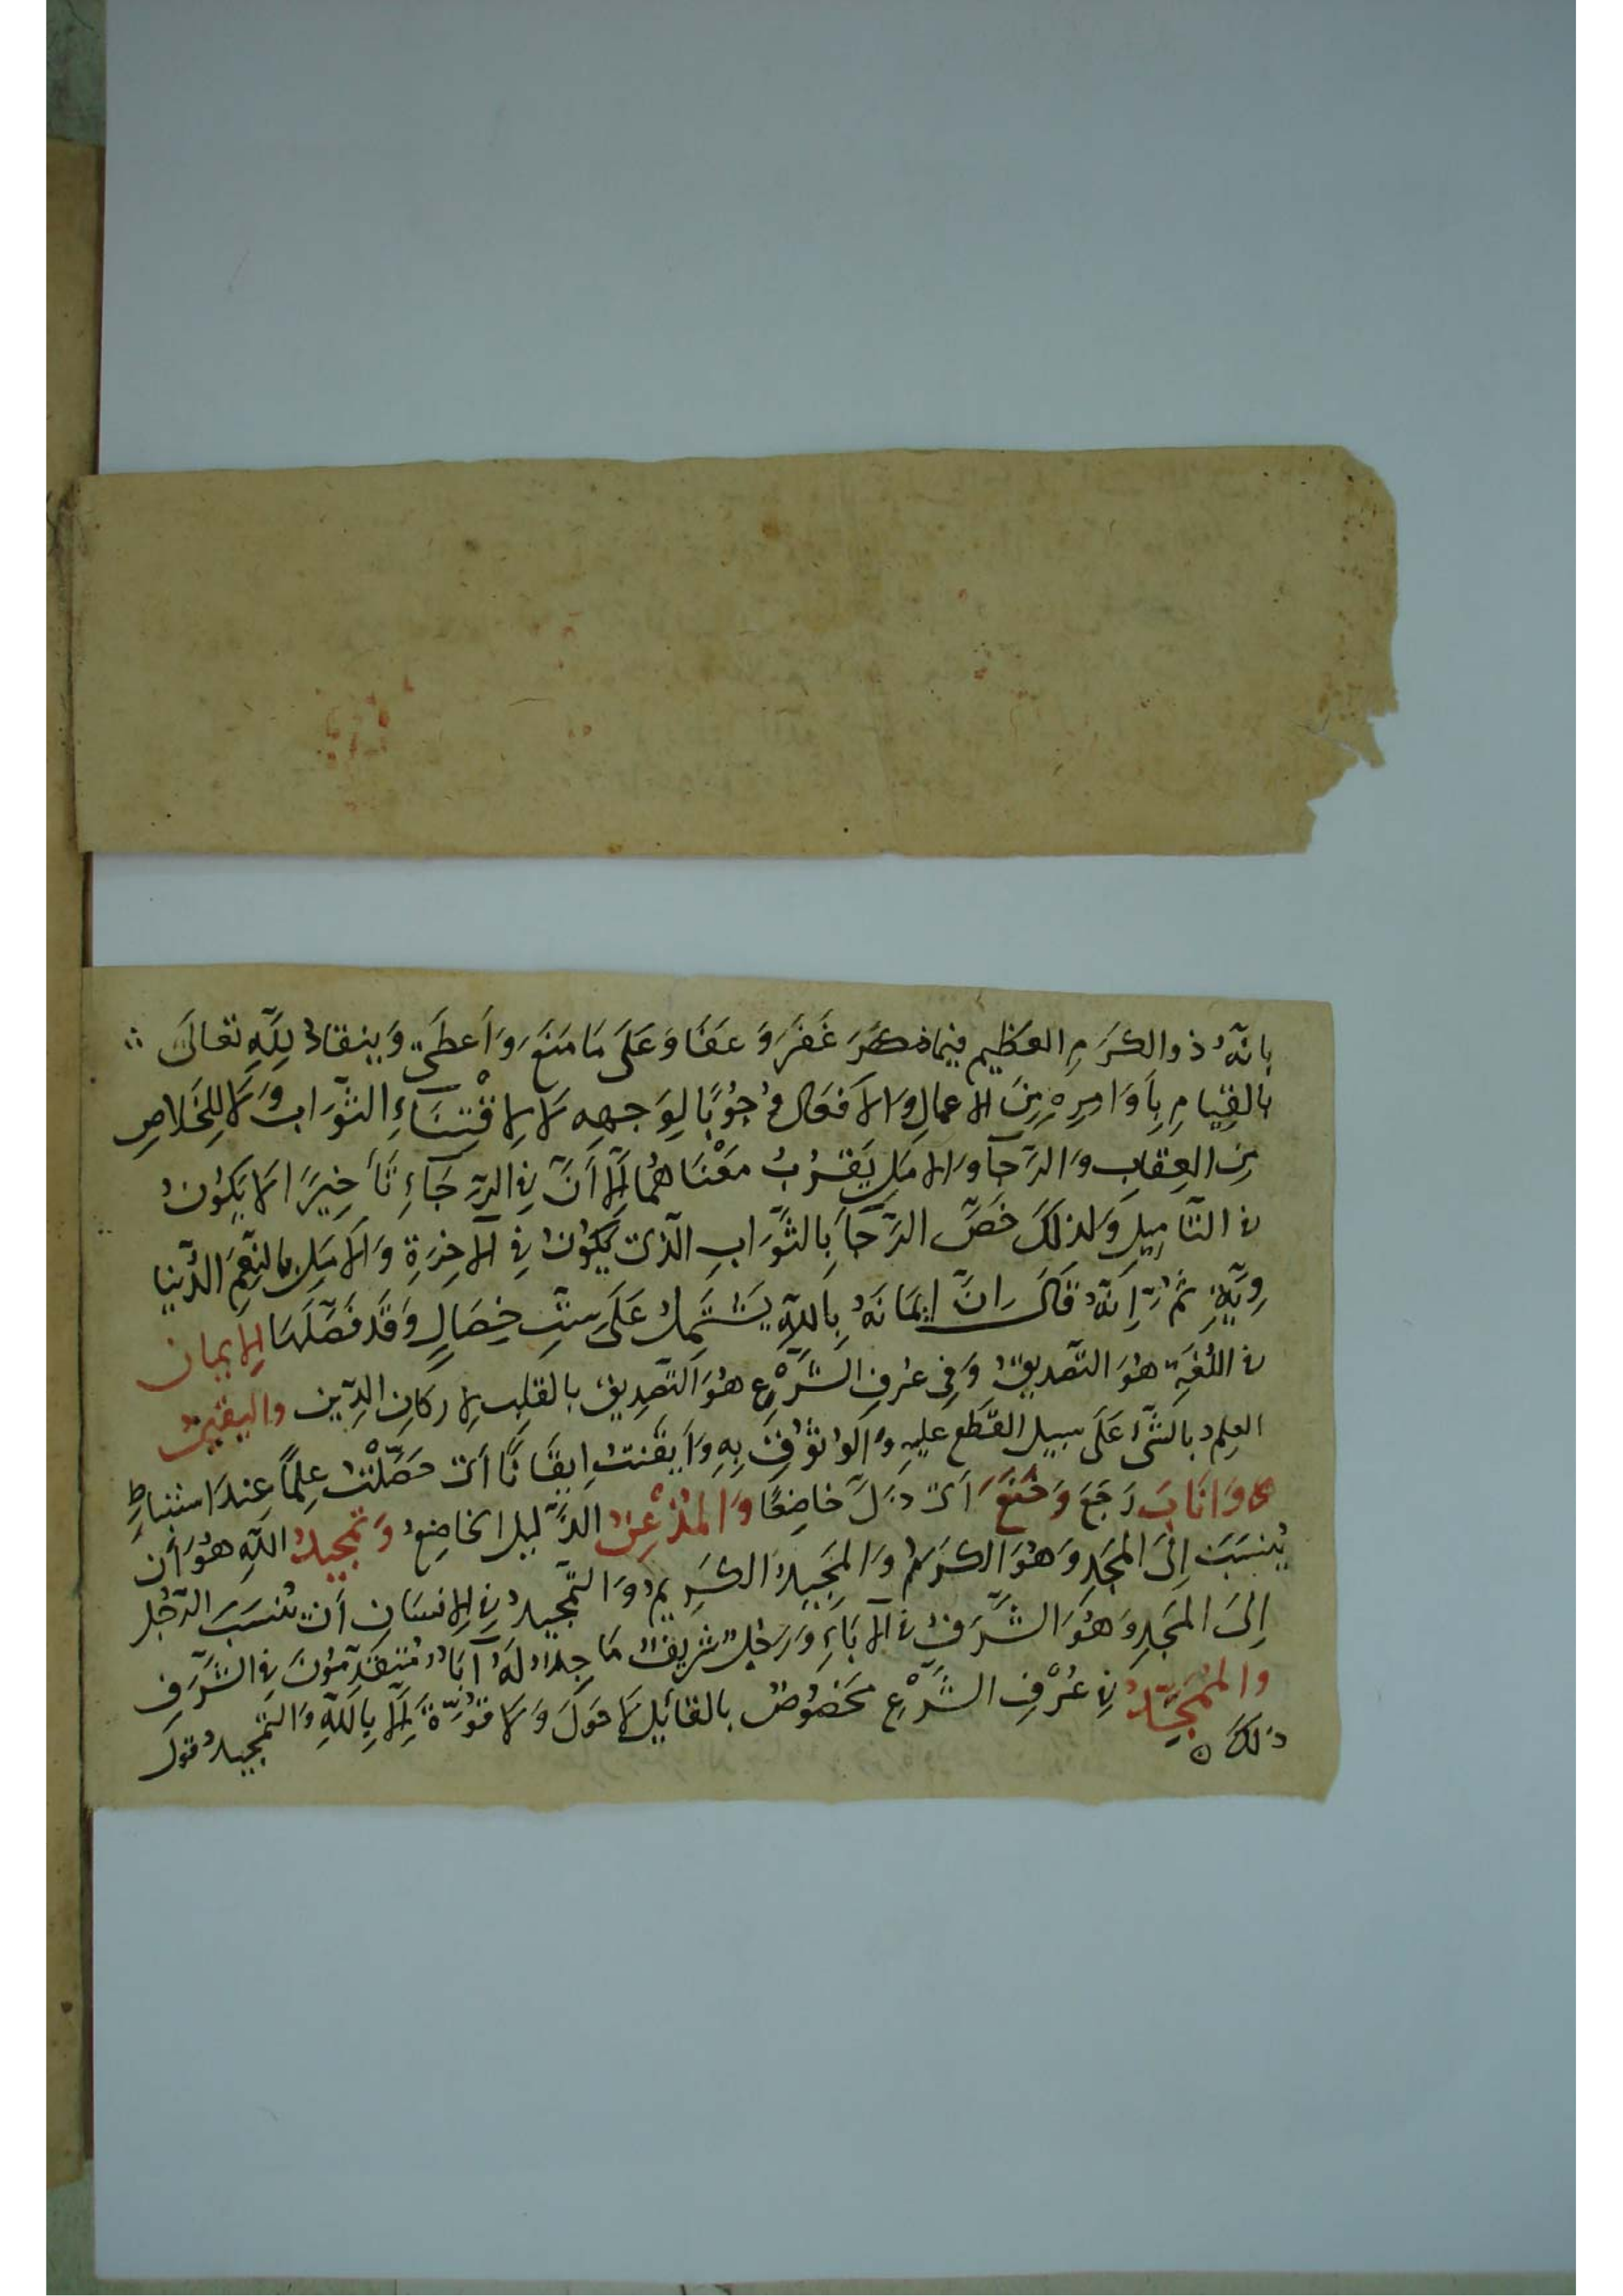 بانّهُ ذو الكَرَمِ العَظيمِ فيما ذكَرَ غَفَرَ وَ عَفَا وَ عَلَى مَا مَنَعَ وَ اَعطَى وَ ينقادُ لِلّهِ تعَالَى
بالقِيامِ بِأَوَامِرِهِ مِنَ الاعمالِ وَالأفعَالِ وُجُوبًا لِوَجهِهِ لَا لِاقْتِنَاءِ الثّوَابِ وَ لَا لِلخَلاصِ
مِن العِقابِ وَ الرَّجآ وَ الأمَلِ يَقرُبُ مَعْنَاهُمَا إلَّا أنَّ في الرّجَاءِ تَأخِيرًا لا يَكوُنُ
في التّامِيلِ وَ لذلكَ خَصَّ الرّجآ بالثَّوَابِ الّذى يَكوُنُ في الآخِرَةِ وَ الأمَلِ بالنِّعَمِ الدُّنيا
وِيّةِ ثُمَّ إنّهُ قَالَ إنَّ ايمَانَهُ بِاللّهِ يَشتَمِلُ عَلَى سِتِّ خِصَالٍ وَ قَد فَصّلَهَا الإيمان
في اللُّغَةِ هُوَ التّصديقُ وَ فِى عُرفِ الشَّرْعِ هُوَ التّصدِيقُ بالقَلبِ لِأركانِ الدِّينِ واليقينُ
العِلمُ بالشَّىءِ عَلَى سبيلِ القَطعِ عليهِ وَ الوُثوُقِ بِهِ وَ أيقَنتُ إيقَانًا أى حَصّلْتُ عِلمًا عِندَ استنباطٍ
وَ انَابَ رَجَعَ وَ خَنَعَ أى ذَلَّ خاضِعًا وَ المُذْعِنُ الذَّليلُ الخاضِعُ وَ تمجيدُ اللّهِ هُوَ أن
يُنسَبَ إلَى المَجدِ وَ هُوَ الكَرَمُ وَ المَجِيدُ الكَرِيمُ وَ التّمجيدُ في الإنسَانِ أن تُنسَبَ الرّجُلَ
إلَى المَجدِ وَ هُوَ الشَّرَفُ في الآبَاءِ وَ رَجُلٌ شريفٌ مَاجِدٌ لَهُ آبَاءٌ مُتقَدِّمُونَ في الشَّرَفِ
وَ المُمَجِّدُ في عُرْفِ الشَّرْعِ مَخصُوصٌ بالقائِلِ لَا حَولَ وَ لَا قُوّةَ إلّا بِاللّهِ وَ التّمجيدُ قولُ
ذلكَ ٥